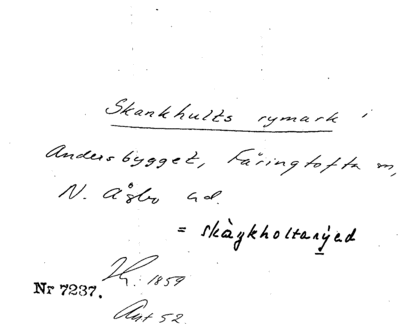 Skankhults rymark i
Andersbygget, Färingtofta sn,
N. Åsbo hd.
= skàŋkholtarýed
Nr 7237. 1859
Ant 52